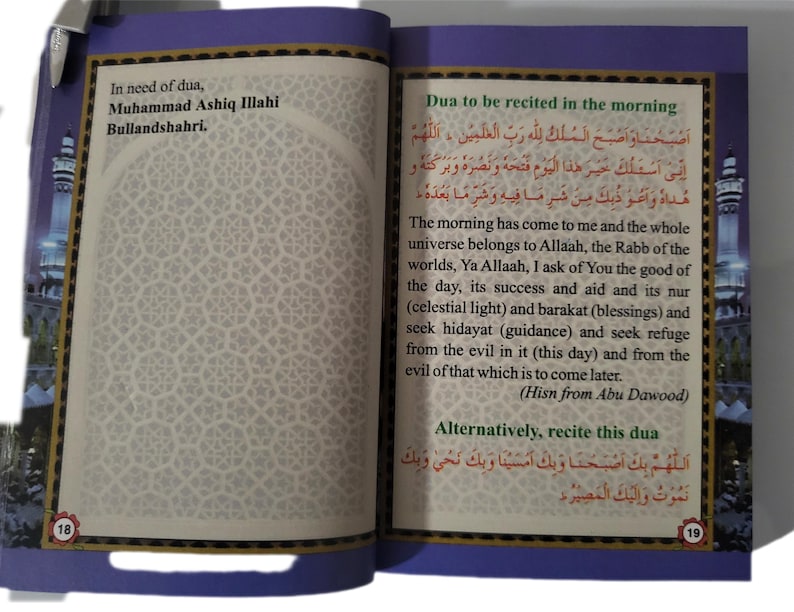 In need of dua,
Muhammad Ashiq Illahi
Bullandshahri.
18
Dua to be recited in the morning
اَصْبَحْنَا وَاَصْبَحَ الْمُلْكُ لِلّٰهِ رَبِّ الْعٰلَمِيْنَ ط اَللّٰهُمَّ
اِنِّىْ اَسْئَلُكَ خَيْرَ هٰذَا الْيَوْمِ فَتْحَهٗ وَنَصْرَهٗ وَنُوْرَهٗ وَبَرْكَتَهٗ وَ
هُدَاهُ وَاَعُوْذُبِكَ مِنْ شَرِّ مَا فِيْهِ وَشَرِّ مَا بَعْدَهٗ ط
The morning has come to me and the whole
universe belongs to Allaah, the Rabb of the
worlds, Ya Allaah, I ask of You the good of
the day, its success and aid and its nur
(celestial light) and barakat (blessings) and
seek hidayat (guidance) and seek refuge
from the evil in it (this day) and from the
evil of that which is to come later.
(Hisn from Abu Dawood)
Alternatively, recite this dua
اَللّٰهُمَّ بِكَ اَصْبَحْنَا وَبِكَ اَمْسَيْنَا وَبِكَ نَحْيٰ وَبِكَ
نَمُوْتُ وَاِلَيْكَ الْمَصِيْرُ ط
19